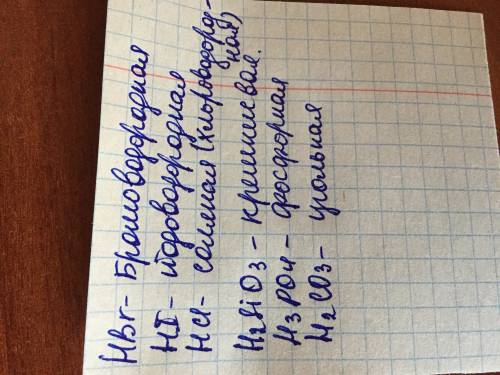 HBr - Бромоводородная
HI - йодоводородная
HCl - соляная (хлороводород-
ная)
H2SiO3 - кремниевая.
H3PO4 - фосфорная
H2CO3 - угольная